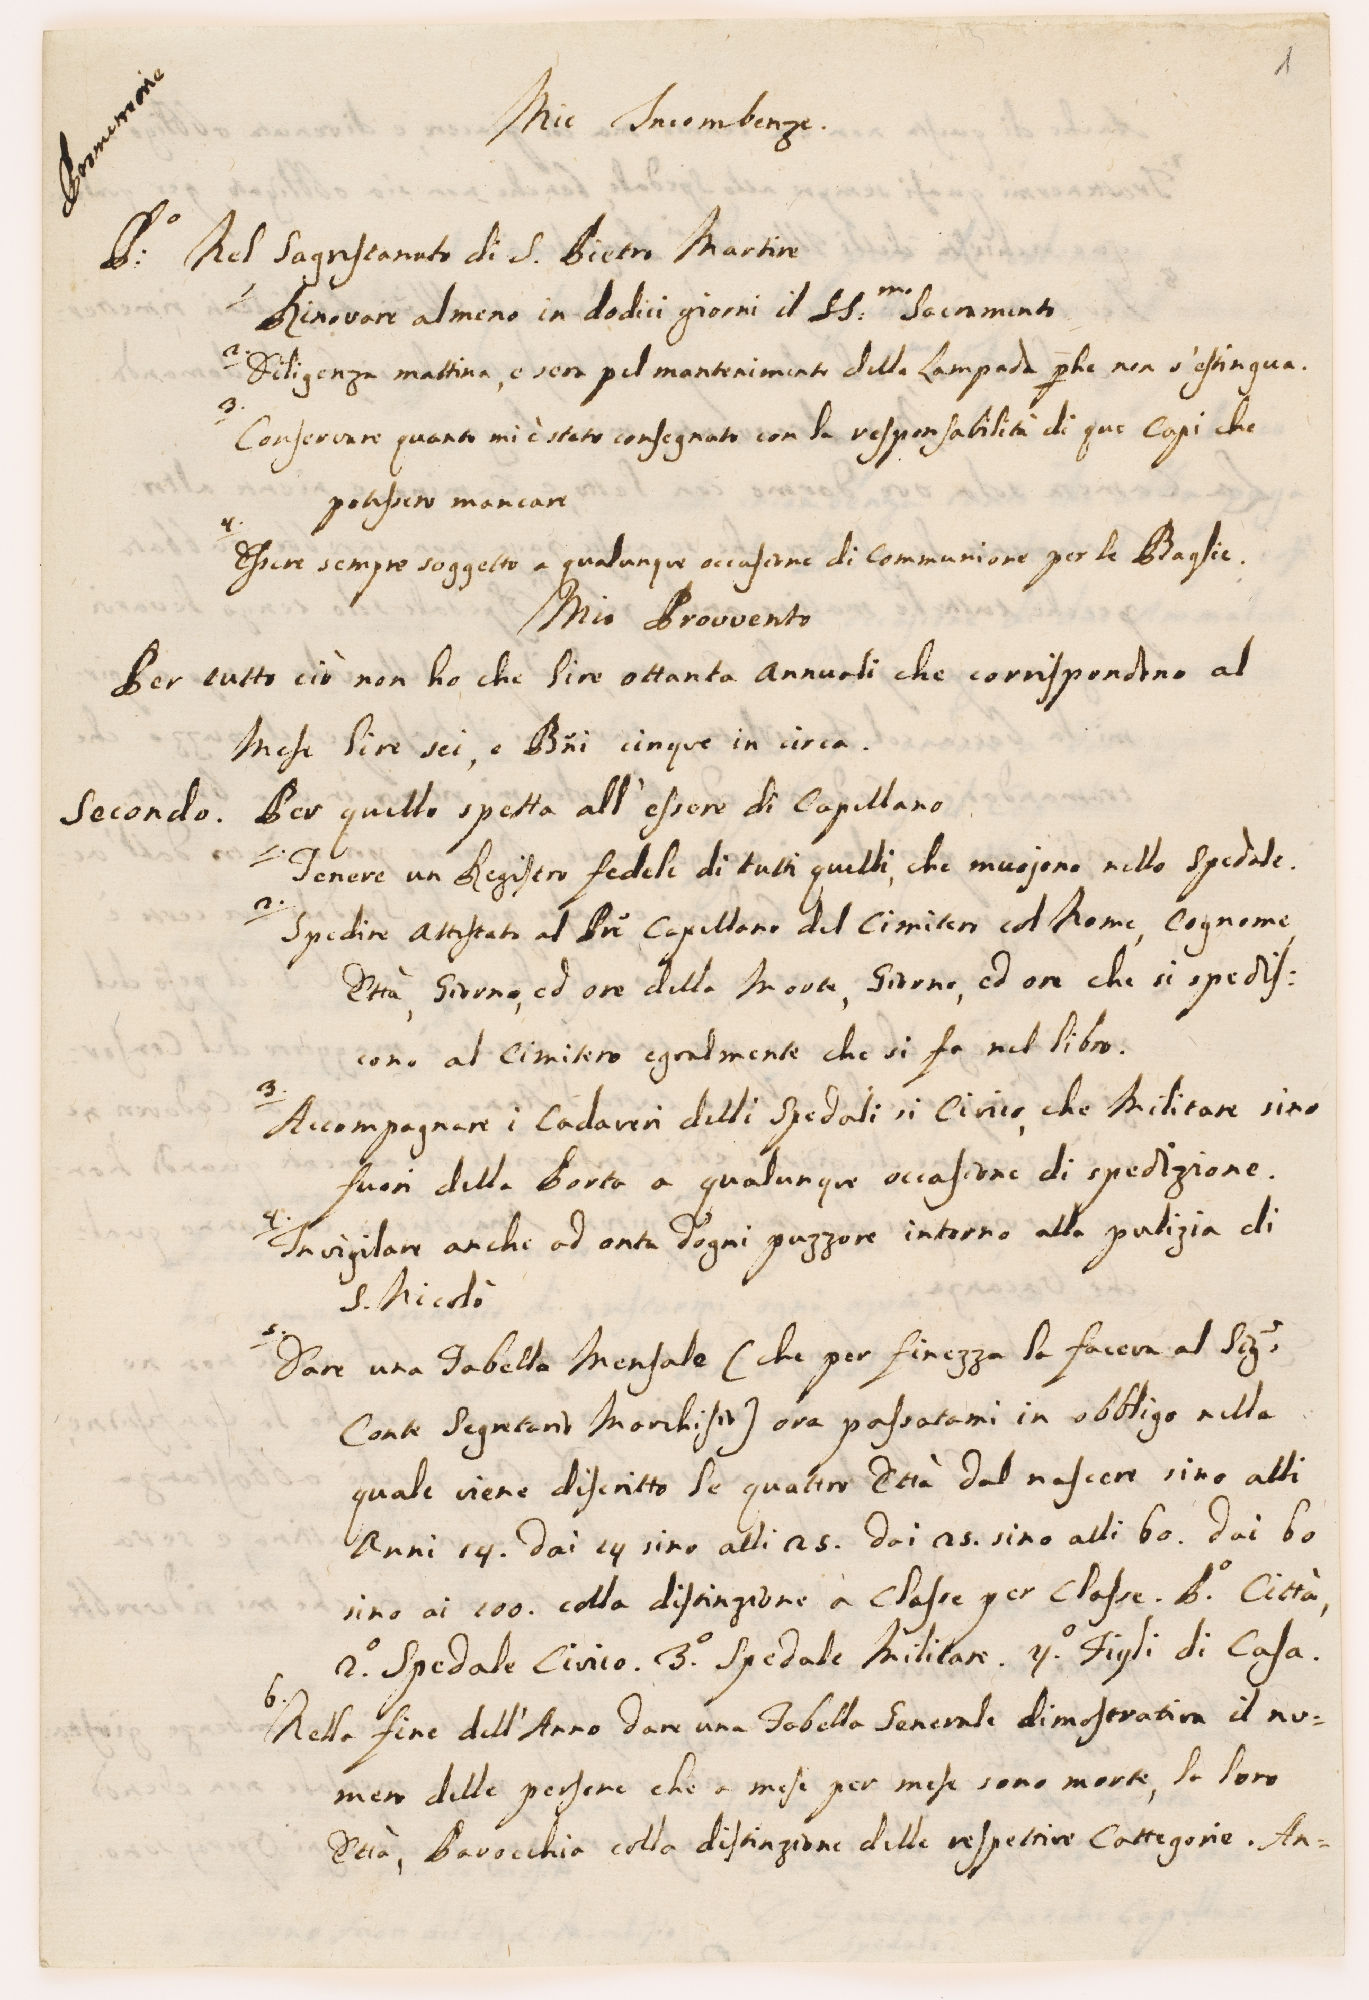 1
Mie Incombenze.
P:º Nel Sagristanato di S. Pietro Martire
1. Rinovare almeno in dodici giorni il SS:mo Sacramento
2. Diligenza mattina, e sera pel mantenimento della Lampada p̄che non s'estingua.
3. Conservare quanto mi è stato consegnato con la responsabilità di que Capi che
potessero mancare
4. Essere sempre soggetto a qualunque occasione di Communione per le Baglie.
Mio Provvento
Per tutto ciò non ho che lire ottanta annuali che corrispondono al
Mese lire sei, e Bñi cinque in circa.
Secondo. Per quello spetta all'essere di Capellano
1. Tenere un Registro fedele di tutti quelli, che muojono nello Spedale.
2. Spedire Attestato al Pre Capellano del Cimitero col Nome, Cognome,
Età, Giorno, ed ore della Morte, Giorno, ed ore che si spedis:
cono al Cimitero egualmente che si fa nel libro.
3. Accompagnare i Cadaveri delli Spedali si Civico, che Militare sino
fuori della Porta a qualunque occasione di spedizione.
4. Invigilare anche ad onta d'ogni puzzore intorno alla pulizia di
S. Nicolò
5. Dare una Tabella Mensale (che per finezza la faceva al Sigr
Conte Segretario Marchisio) ora passatami in obbligo nella
quale viene discritto le quattro Età dal nascere sino alli
Anni 14. dai 14 sino alli 25. dai 25. sino alli 60. dai 60
sino ai 100. colla distinzione a Classe per Classe. P.º Città,
2.º Spedale Civico. 3.º Spedale Militare. 4.º Figli di Casa.
6. Nella fine dell'Anno dare una Tabella Generale dimostrativa il nu=
mero delle persone che a mese per mese sono morte, la loro
Età, Parocchia colla distinzione delle respettive Cattegorie. An=